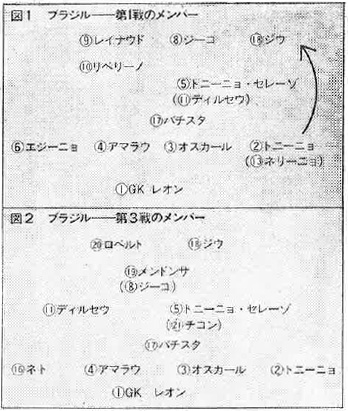 図1 ブラジル——第1戦のメンバー
⑨レイナウド ⑧ジーコ ⑱ジウ
⑩リベリーノ
⑤トニーニョ・セレーゾ
(⑪ディルセウ)
⑰バチスタ
⑥エジーニョ ④アマラウ ③オスカール ②トニーニョ
(⑬ネリーニョ)
①GK レオン
図2 ブラジル——第3戦のメンバー
⑳ロベルト ⑱ジウ
⑲メンドンサ
(⑧ジーコ)
⑪ディルセウ ⑤トニーニョ・セレーゾ
(㉑チコン)
⑰バチスタ
⑯ネト ④アマラウ ③オスカール ②トニーニョ
①GK レオン